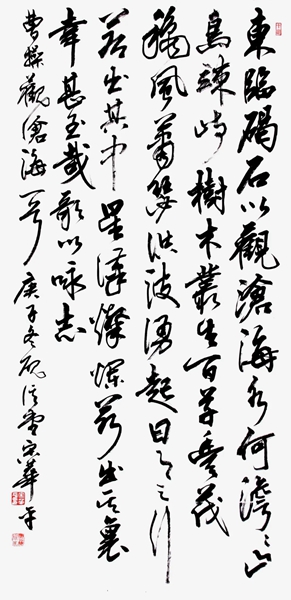 東臨碣石以觀滄海水何澹〻山
島竦峙樹木叢生百草豐茂
穐風蕭瑟洪波湧起日月之行
若出其中星漢燦爛若出其裏
幸甚至哉歌以咏志
曹操觀滄海一首庚子冬宋華平